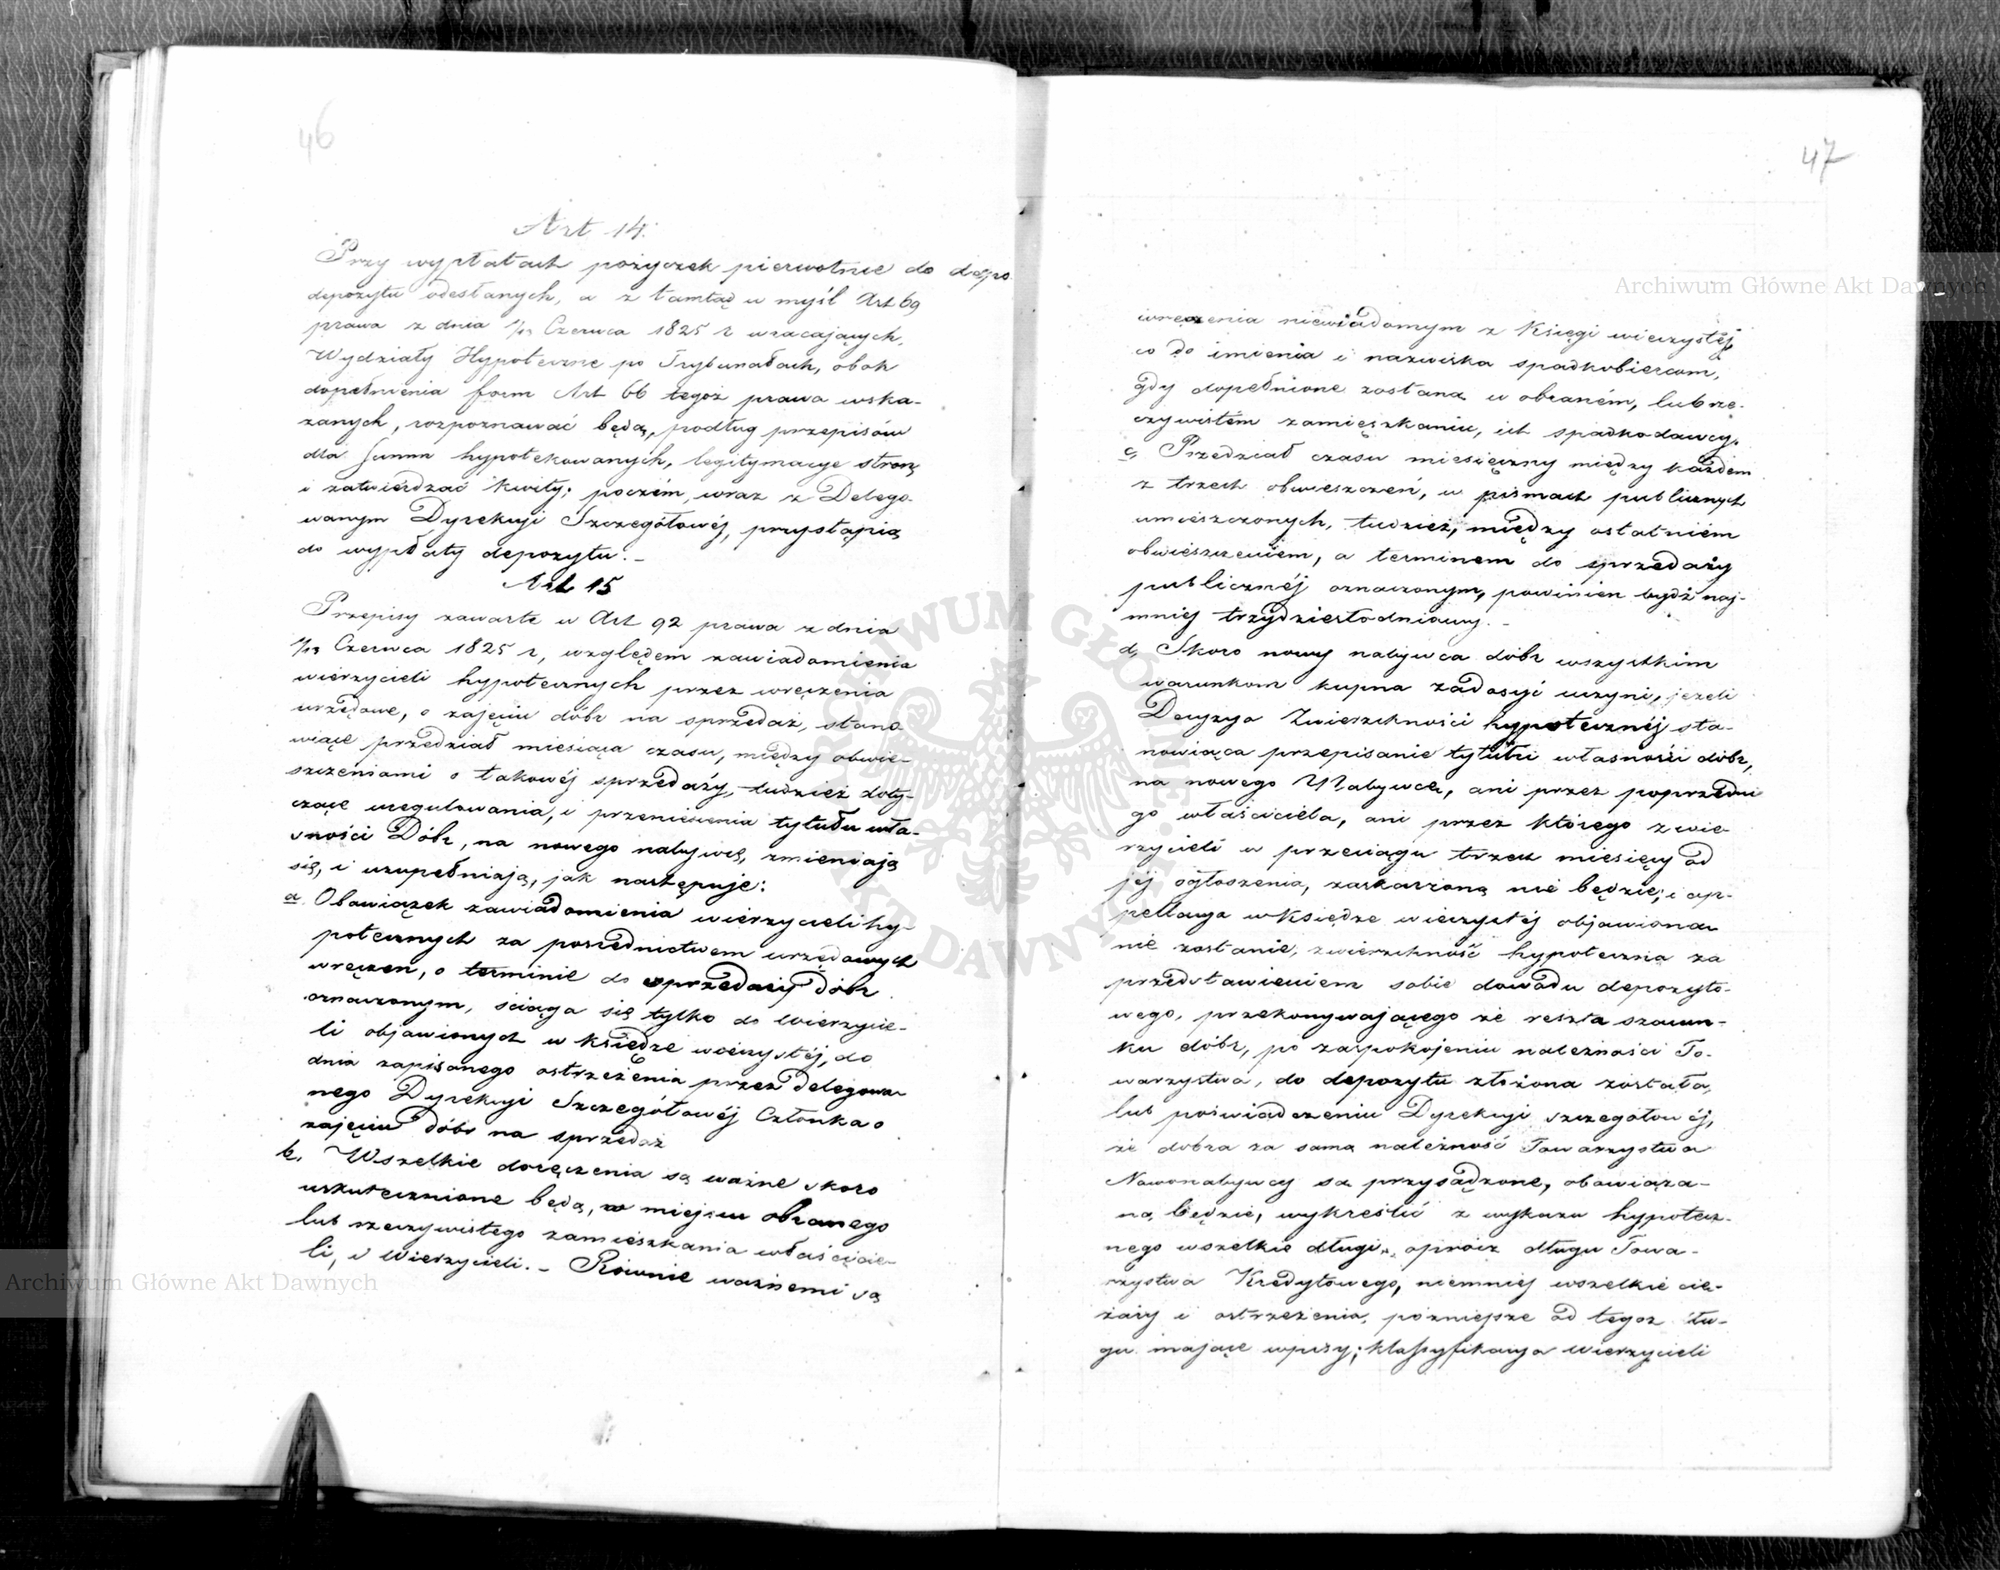 46
Art 14.
Przy wypłatach pożyczek pierwotnie do depo.
depozytu odesłanych, a z tamtąd w myśl Art 69
prawa z dnia 1/13 Czerwca 1825 r wracających,
Wydziały Hypoteczne po Trybunałach, obok
dopełnienia form Art 66 tegoż prawa wska-
zanych, rozpoznawać będą, podług przepisów
dla summ hypotekowanych, legitymacye stron,
i zatwierdzać kwity; poczém wraz z Delego-
wanym Dyrekcyi Szczegółowéj, przystąpią
do wypłaty depozytu. –
Art 15
Przepisy zawarte w Art 92 prawa z dnia
1/13 Czerwca 1825 r, względem zawiadomienia
wierzycieli hypotecznych przez wręczenia
urzędowe, o zajęciu dóbr na sprzedaż, stano
wiące przedział miesiąca czasu, między obwie-
szczeniami o takowéj sprzedaży, tudzież doty-
czące uregulowania, i przeniesienia tytułu wła-
sności Dóbr, na nowego nabywcę, zmieniają
się, i uzupełniają, jak następuje:
a Obowiązek zawiadomienia wierzycieli hy-
potecznych za pośrednictwem urzędowych
wręczeń, o terminie do sprzedaży dóbr
oznaczonym, ściąga się tylko do Wierzycie-
li objawionych w księdze wieczystéj, do
dnia zapisanego ostrzeżenia przez delegowa-
nego Dyrekcyi Szczegółowéj Członka o
zajęciu dóbr na sprzedaż
b. Wszelkie doręczenia są ważne skoro
uskutecznione będą, w miejscu obranego
lub rzeczywistego zamieszkania właścicie-
li, i Wierzycieli. – Równie ważnemi są
47
wręczenia niewiadomym z Księgi wieczystéj,
co do imienia i nazwiska spadkobiercom,
gdy dopełnione zostaną w obraném, lub rze-
czywistem zamieszkaniu, ich spadkodawcy.
c, Przedział czasu miesięczny między każdem
z trzech obwieszczeń, w pismach publicznych
umieszczonych, tudzież, między ostatniém
obwieszczeniem, a terminem do sprzedaży
publicznéj oznaczonym, powinien bydź naj-
mniéj trzydziestodniowy. –
d, Skoro nowy nabywca dóbr wszystkim
warunkom kupna zadosyć uczyni, jeżeli
Decyzya Zwierzchności hypotecznéj sta-
nowiąca przepisanie tytułu własności dóbr,
na nowego Nabywcę, ani przez poprzednie
go właściciela, ani przez którego z wie-
rzycieli w przeciągu trzech miesięcy od
jéj ogłoszenia, zaskarżoną nie będzie, i ap-
pellacya w Księdze wieczystéj objawiona
nie zostanie, zwierzchność hypoteczna za
przedstawieniem sobie dowodu depozyto-
wego, przekonywającego że reszta szacun-
ku dóbr, po zaspokojeniu należności To-
warzystwa, do depozytu złożona została,
lub poświadczeniu Dyrekcyi szczegółowéj,
że dobra za samą należność Towarzystwa
Nowonabywcy są przysądzone, obowiąza-
ną będzie, wykreślić z wykazu hypotecz-
nego wszelkie długi, oprócz długu Towa-
rzystwa Kredytowego, niemniéj wszelkie cię-
żary i ostrzeżenia, późniejsze od tegoż dłu-
gu mające wpisy; klassyfikacya Wierzycieli
Archiwum Główne Akt Dawnych
Archiwum Główne Akt Dawnych
ARCHIWUM GŁÓWNE AKT DAWNYCH